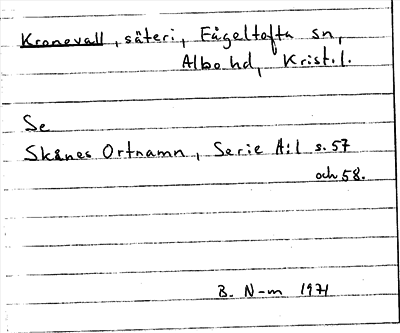 Kronevall, säteri, Fågeltofta sn,
Albo hd, Krist. l.
Se
Skånes Ortnamn, Serie A:1 s. 57
och 58.
B. N-m 1971